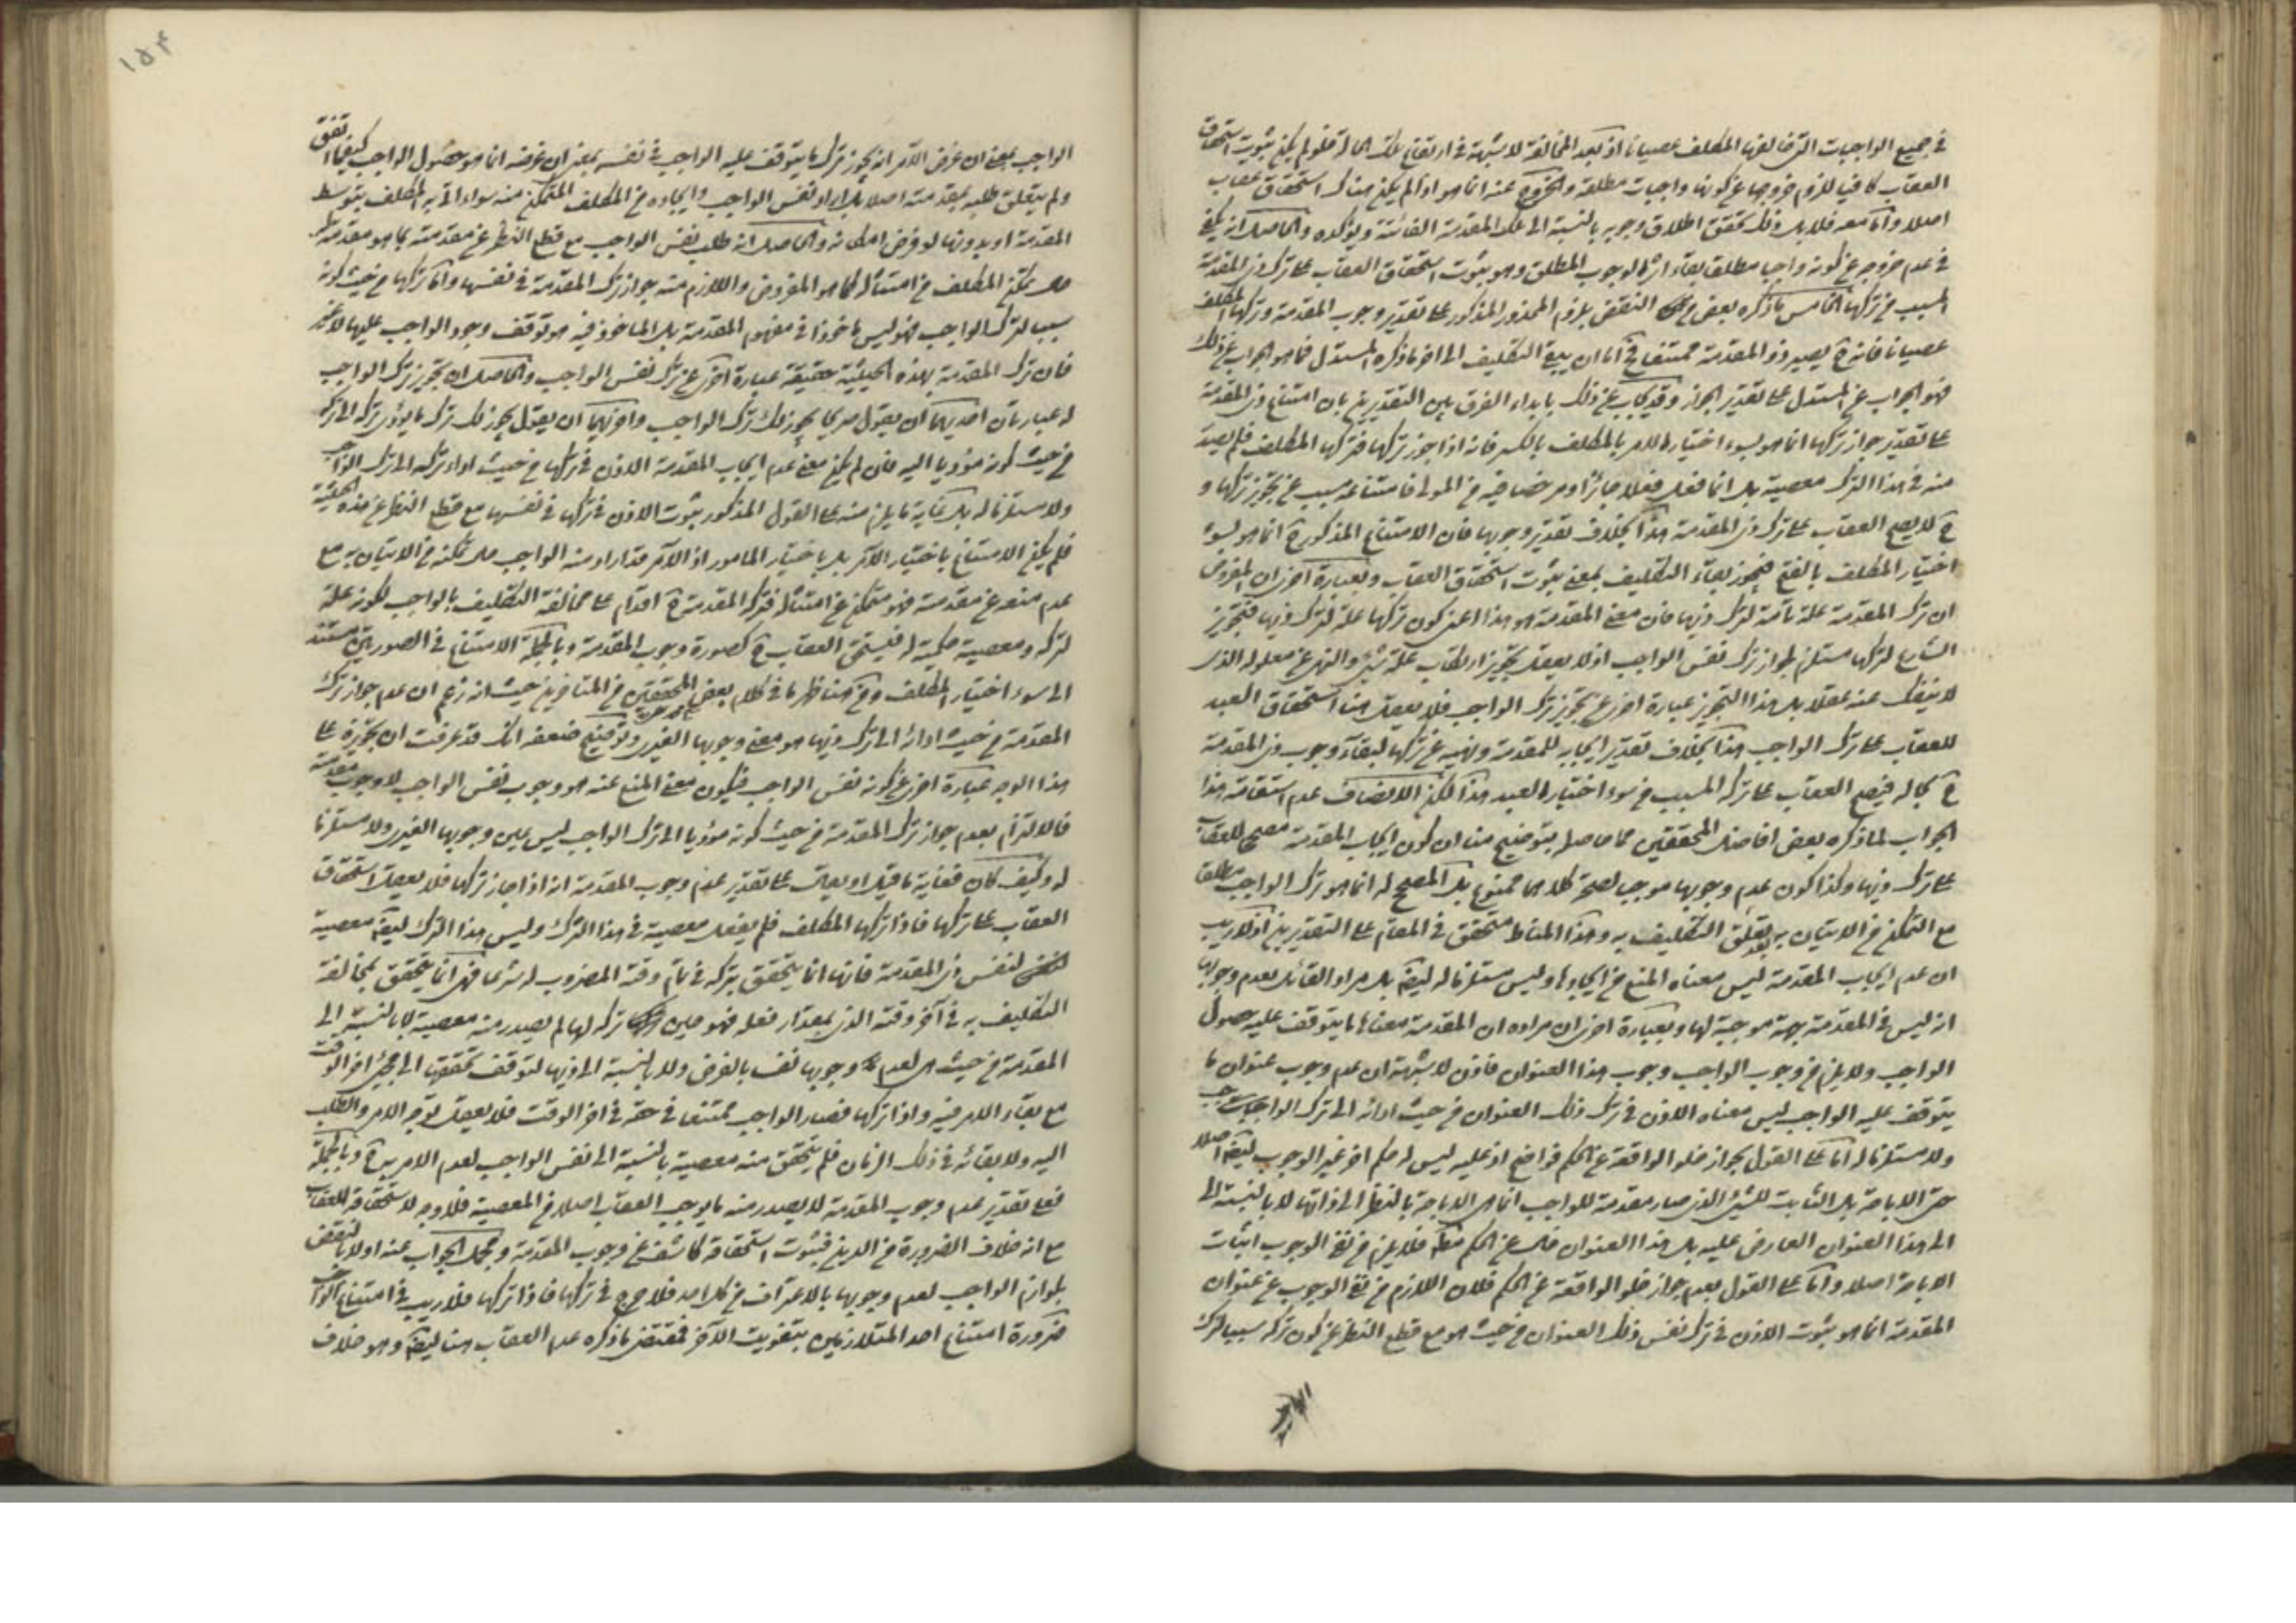 في جميع الواجبات التي خالفها المكلف عصيانا اذ بعد المخالفة لا شبهة في ارتفاع تلك الحالة فلو لم يكن ثبوت استحقاق
العقاب كافيا للزم خروجها عن كونها واجبات مطلقة والخروج عنه انما هو اذا لم يكن هناك استحقاق عقاب
اصلا واما معه فلا بل ذلك يحقق اطلاق وجوبه بالنسبة الى تلك المقدمة الفائتة ويؤكده والحاصل انه يكفي
في عدم خروجه عن كونه واجبا مطلقا بقاء اثر الوجوب المطلق وهو ثبوت استحقاق العقاب على ترك ذي المقدمة
المسبب من تركها الخامس ما ذكره بعض من النقض بلزوم المحذور المذكور على تقدير وجوب المقدمة وتركها المكلف
عصيانا فانه ح يصير ذو المقدمة ممتنعا ح اما ان يبقى التكليف الى اخر ما ذكره المستدل فما هو الجواب عن ذلك
فهو الجواب عن المستدل على تقدير الجواز وقد يجاب عن ذلك بابداء الفرق بين التقديرين بان امتناع ذي المقدمة
على تقدير جواز تركها انما هو بسوء اختيار الامر بالمكلف بالكسر فانه اذا جوز تركها فتركها المكلف فلم يصدر
منه في هذا الترك معصية بل انما فعل فعلا جائزا ومرخصا فيه من المولى فامتناعه مسبب عن تجويز تركها و
ح لا يصح العقاب على ترك ذي المقدمة هذا بخلاف تقدير وجوبها فان الامتناع المذكور ح انما هو بسوء
اختيار المكلف بالفتح فيجوز بقاء التكليف بمعنى ثبوت استحقاق العقاب وبعبارة اخرى ان المفروض
ان ترك المقدمة علة تامة لترك ذيها فان معنى المقدمة هو هذا اعني كون تركها علة لترك ذيها فتجويز
الشارع لتركها مستلزم لجواز ترك نفس الواجب اذ لا يعقل تجويز ارتكاب علة شيء والنهي عن معلوله الذي
لا ينفك عنه عقلا بل هذا التجويز عبارة اخرى عن تجويز ترك الواجب فلا يعقل هنا استحقاق العبد
للعقاب على ترك الواجب هذا بخلاف تقدير ايجابه للمقدمة ونهيه عن تركها لبقاء وجوب ذي المقدمة
ح بحاله فيصح العقاب على تركه المسبب من سوء اختيار العبد هذا لكن الانصاف عدم استقامة هذا
الجواب لما ذكره بعض افاضل المحققين مما حاصله بتوضيح منا ان كون ايجاب المقدمة مصححا للعقاب
على ترك ذيها وكذا كون عدم وجوبها موجبا لصحة كلاهما ممنوع بل المصحح له انما هو ترك الواجب مطلقا
مع التمكن من الاتيان به بعد تعلق التكليف به وهذا المناط متحقق في المقام على التقديرين اذ لا ريب
ان عدم ايجاب المقدمة ليس معناه المنع من ايجادها وليس مستلزما له ايضا بل مراد القائل بعدم وجوبها
انه ليس في المقدمة جهة موجبة لها وبعبارة اخرى ان مراده ان المقدمة معناها ما يتوقف عليه حصول
الواجب ولا يلزم من وجوب الواجب وجوب هذا العنوان فاذن لا شبهة ان عدم وجوب عنوان ما
يتوقف عليه الواجب ليس معناه الاذن في ترك ذلك العنوان من حيث ادائه الى ترك الواجب
ولا مستلزما له اما على القول بجواز خلو الواقعة عن الحكم فواضح اذ عليه ليس له حكم اخر غير الوجوب ايضا اصلا
حتى الاباحة بل الثابت للشيء الذي صار مقدمة للواجب انما هي الاباحة بالنظر الى ذاتها لا بالنسبة الى
الى هذا العنوان العارض عليه بل هذا العنوان خال عن الحكم فلا يلزم من نفي الوجوب اثبات
الاباحة اصلا واما على القول بعدم جواز خلو الواقعة عن الحكم فلان اللازم من نفي الوجوب عن عنوان
المقدمة انما هو ثبوت الاذن في ترك نفس ذلك العنوان من حيث هو مع قطع النظر عن كون تركه سببا لترك
١٥٤
الواجب بمعنى ان غرض الآمر انه يجوز ترك ما يتوقف عليه الواجب في نفسه بمعنى ان غرضه انما هو حصول الواجب كيفما اتفق
ولم يتعلق طلبه بمقدمته اصلا بل اراد نفس الواجب وايجاده من المكلف المتمكن منه سواء اتى به المكلف بتوسط
المقدمة او بدونها لو فرض امكانه والحاصل انه طلب نفس الواجب مع قطع النظر عن مقدمته بما هو مقدمة
حال تمكن المكلف من امتثاله كما هو المفروض واللازم منه جواز ترك المقدمة في نفسها واما تركها من حيث كونه
سببا لترك الواجب فهو ليس ماخوذا في مفهوم المقدمة بل الماخوذ فيه هو توقف وجود الواجب عليها لا غير
فان ترك المقدمة بهذه الحيثية حقيقة عبارة اخرى عن ترك نفس الواجب والحاصل ان تجويز ترك الواجب
له عبارتان احديهما ان يقول صريحا يجوز لك ترك الواجب واخريهما ان يقول يجوز لك ترك ما يؤدي تركه الى تركه
من حيث كونه مؤديا اليه فان لم يكن معنى عدم ايجاب المقدمة الاذن في تركها من حيث اداء تركه الى ترك الواجب
ولا مستلزما له بل غاية ما يلزم منه على القول المذكور ثبوت الاذن في تركها في نفسها مع قطع النظر عن هذه الحيثية
فلم يكن الامتناع باختيار الآمر بل باختيار المامور اذ الآمر قد اراد منه الواجب حال تمكنه من الاتيان به مع
عدم منعه عن مقدمته فهو متمكن عن امتثاله فتركه المقدمة ح اقدام على مخالفة التكليف بالواجب لكونه علة
لتركه ومعصية حكمية له فيستحق العقاب ح كصورة وجوب المقدمة وبالجملة الامتناع في الصورتين مستند
الى سوء اختيار المكلف ومن هنا ظهر ما في كلام بعض المحققين من المتاخرين حيث انه زعم ان عدم جواز ترك
المقدمة من حيث ادائه الى ترك ذيها هو معنى وجوبها الغيري وتوضيح ضعفه انك قد عرفت ان تجويزه على
هذا الوجه عبارة اخرى عن كونه نفس الواجب فيكون معنى المنع عنه هو وجوب نفس الواجب لا وجوب مقدمته
فالالتزام بعدم جواز ترك المقدمة من حيث كونه مؤديا الى ترك الواجب ليس عين وجوبها الغيري ولا مستلزما
له وكيف كان فغاية ما قيل او يقال على تقدير عدم وجوب المقدمة انه اذا جاز تركها فلا يعقل استحقاق
العقاب على تركها فاذا تركها المكلف فلم يفعل معصية في هذا الترك وليس هذا الترك ايضا معصية
لنفس ذي المقدمة فانها انما يتحقق بتركه في تمام وقته المضروب له شرعا فهي انما يتحقق بمخالفة
التكليف به في آخر وقته الذي بمقدار فعله فهو حين تركه لها لم يصدر منه معصية لا بالنسبة الى
المقدمة من حيث هي لعدم وجوبها نفسا بالفرض ولا بالنسبة الى ذيها لتوقف تحققها الى مجيء اخر الوقت
مع بقاء الامر فيه واذا تركها فصار الواجب ممتنعا في حقه في اخر الوقت فلا يعقل توجه الامر والطلب
اليه ولا بقائه في ذلك الزمان فلم يتحقق منه معصية بالنسبة الى نفس الواجب لعدم الامر به ح وبالجملة
فعلى تقدير عدم وجوب المقدمة لا يصدر منه ما يوجب العقاب اصلا من المعصية فلا وجه لاستحقاقه للعقاب
مع انه خلاف الضرورة من الدين فثبوت استحقاقه كاشف عن وجوب المقدمة ومجمل الجواب عنه اولا بالنقض
بلوازم الواجب لعدم وجوبها بالاعتراف من كل احد فلا حرج في تركها فاذا تركها فلا ريب في امتناع الواجب
ضرورة امتناع احد المتلازمين بتفويت الآخر فمقتضى ما ذكره عدم العقاب هنا ايضا وهو خلاف